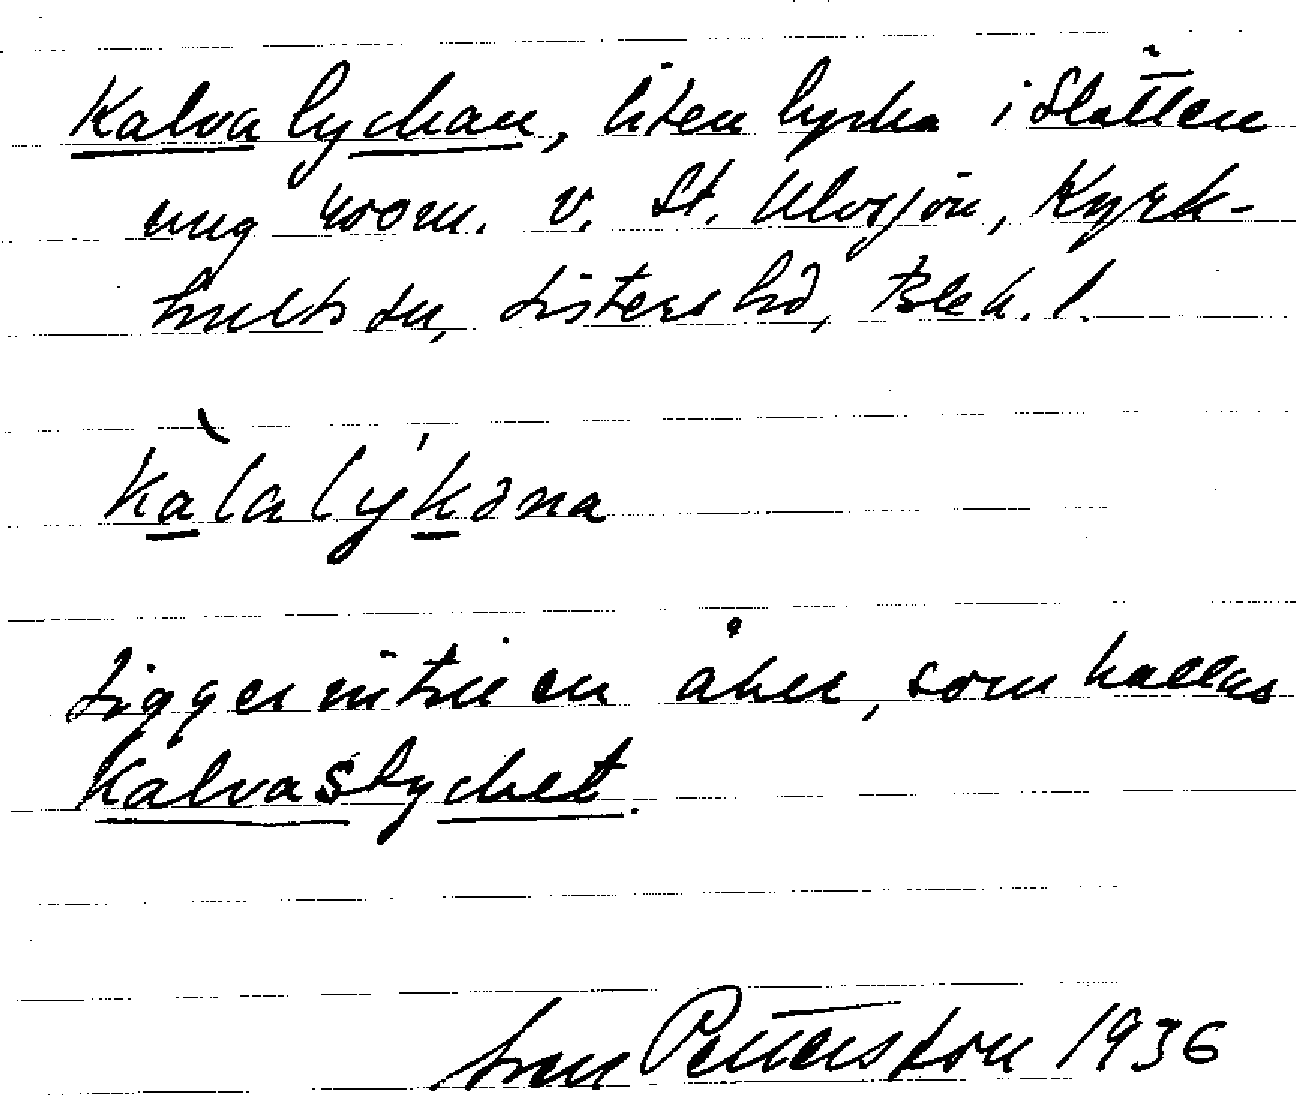 Kalvalyckan, liten lycka i Slätten
ung 400 m. v. St. Ulvsjön, Kyrk-
hults sn, Listers hd, Blek. l.
kalalykəna
Ligger intill en åker, som kallas
Kalvastycket.
Sven Pettersson 1936